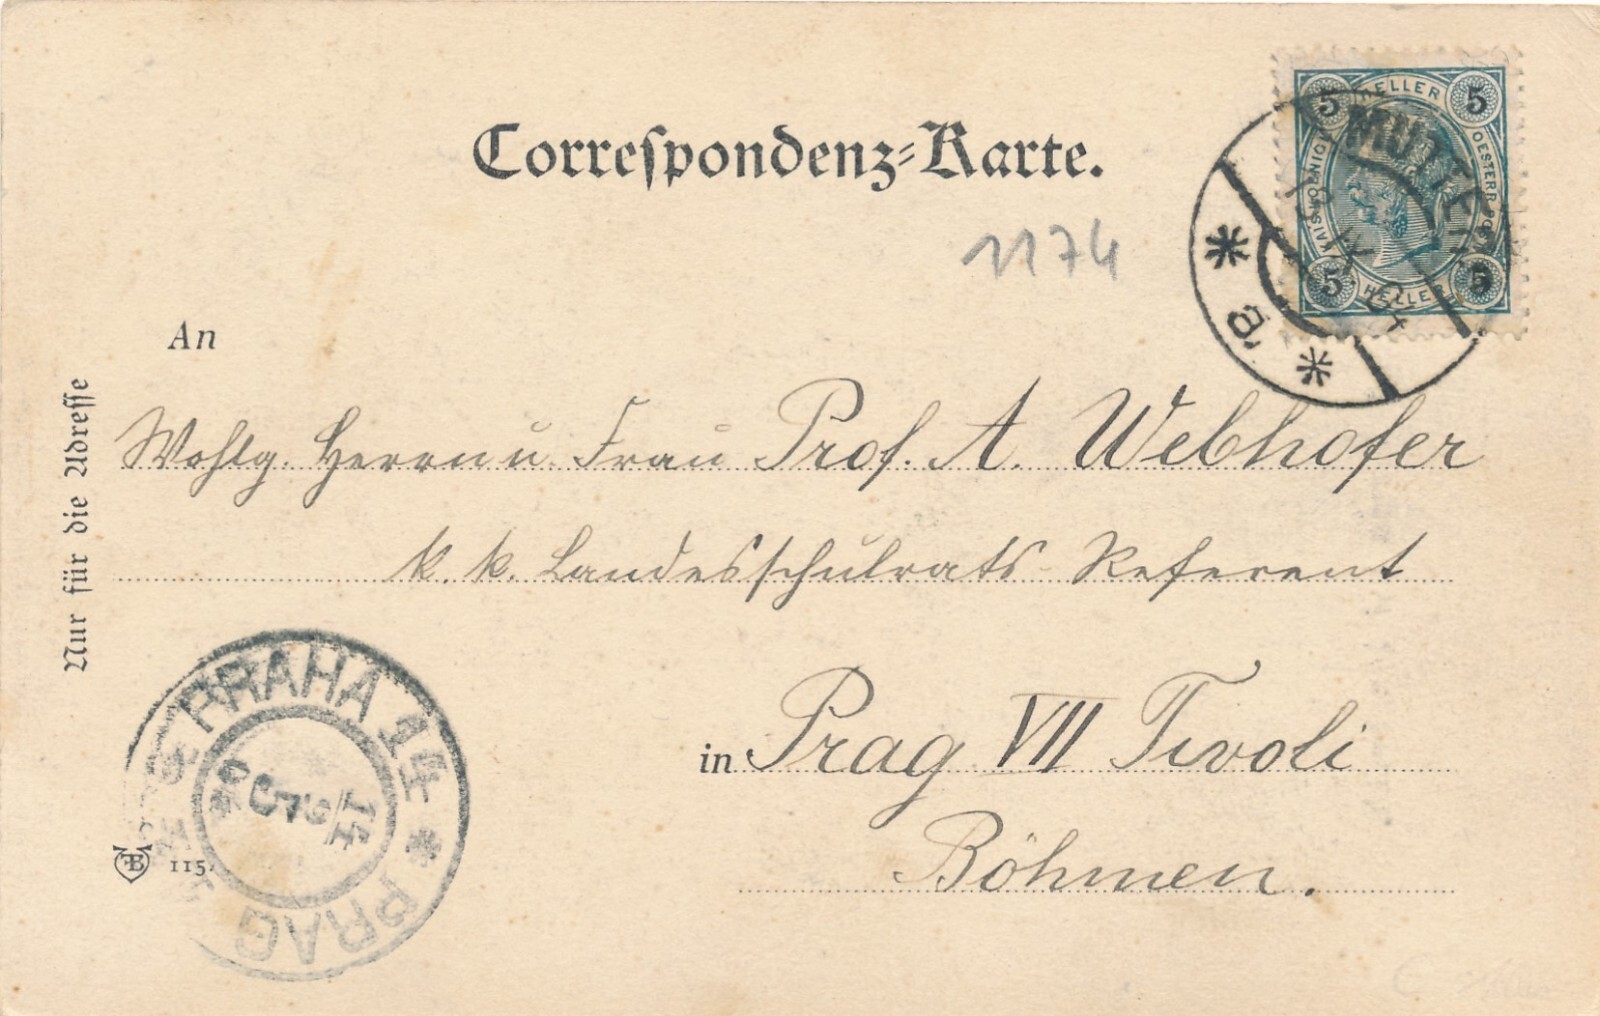 Correspondenz-Karte.
5 HELLER 5
KAIS. KOENIGL. OESTERR. POST
5 HELLER 5
MUTTE
IX 04
* a *
1174
An
Wohlg. Herrn u. Frau Prof. A. Webhofer
k. k. Landesschulrats-Referent
in Prag VII Tivoli
Böhmen.
Nur für die Adresse
PRAHA 14 * PRAG
115.